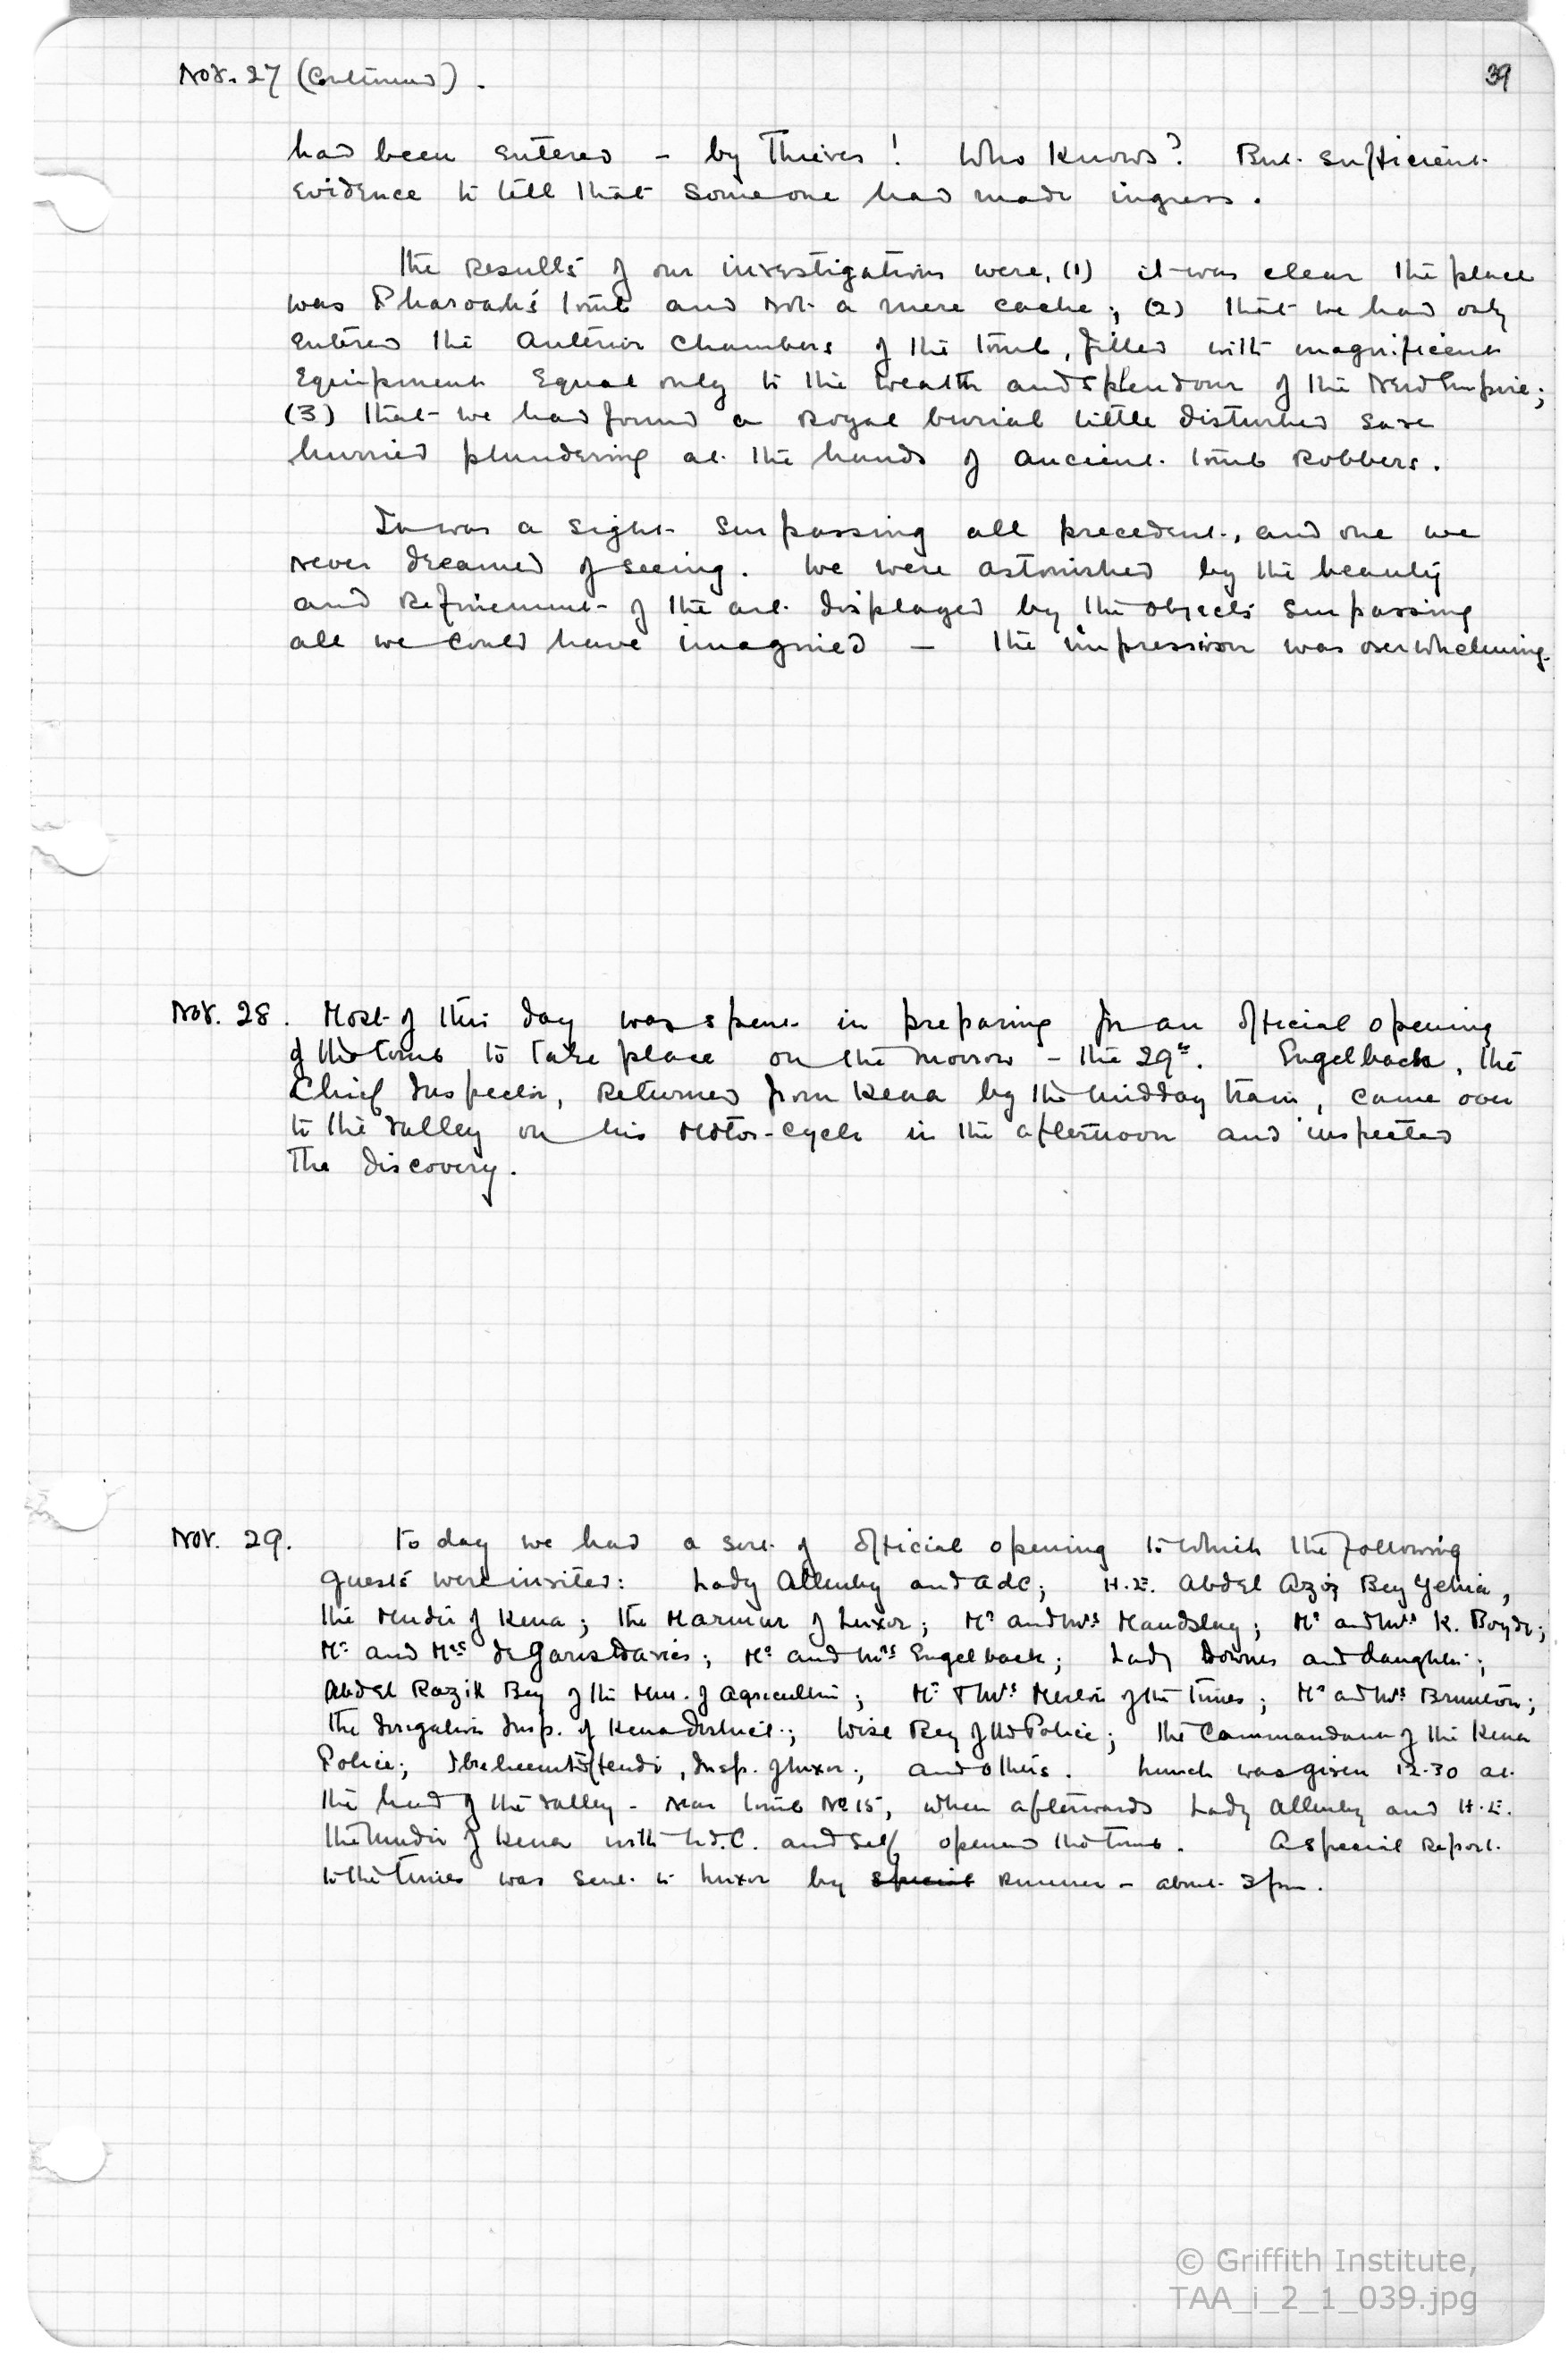 Nov. 27 (Continued).
39
had been entered - by Thieves! Who Knows? But sufficient
evidence to tell that someone had made ingress.
The Results of our investigations were, (1) it was clear the place
was Pharoah's tomb and not a mere cache; (2) that we had only
entered the anterior chambers of the tomb, filled with magnificent
equipment equal only to the wealth and splendour of the New Empire;
(3) that we had found a Royal burial little disturbed save
hurried plundering at the hands of ancient tomb Robbers.
It was a sight surpassing all precedent, and one we
never dreamed of seeing. We were astonished by the beauty
and Refinement of the art displayed by the objects surpassing
all we could have imagined - the impression was overwhelming.
Nov. 28. Most of this day was spent in preparing for an official opening
of the tomb to take place on the morrow - the 29th. Engelbach, the
Chief Inspector, Returned from Kena by the midday train, came over
to the valley on his motor-cycle in the afternoon and inspected
the discovery.
Nov. 29. To day we had a sort of official opening to which the following
guests were invited: Lady Allenby and ADC; H.E. Abdel Aziz Bey Yehia,
the Mudir of Kena; the Mamur of Luxor; Mr and Mrs Maudslay; Mr and Mrs K. Boyd;
Mr and Mrs de Garis Davies; Mr and Mrs Engelbach; Lady Downes and daughter;
Abdel Razik Bey of the Min. of Agriculture; Mr & Mrs Merton of the Times; Mr and Mrs Brunton;
the Irrigation Insp. of Kena District; Wise Bey of the Police; the Commandant of the Kena
Police; Ibraheem Effendi, Insp. of Luxor; and others. Lunch was given 12.30 at
the head of the valley - near tomb No 15, when afterwards Lady Allenby and H.E.
the Mudir of Kena with Ld. C. and self, opened the tomb. A special Report
to the Times was sent to Luxor by special Runner - about 3 pm.
© Griffith Institute,
TAA_i_2_1_039.jpg